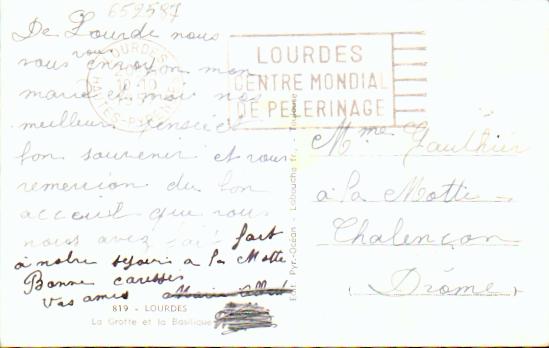 659587
De Lourde nous
vous
vous envoyon mon
marie et moi nos
meilleur pensé et
bon souvenir et vous
remercion du bon
acceuil que vous
nous avez fait fait
à notre séjour a la Motte
Bonne caresses
Vos amies
819 - LOURDES
La Grotte et la Basilique
LOURDES
HAUTES-PYRÉNÉES
LOURDES
CENTRE MONDIAL
DE PELERINAGE
Edit. Pyr.-Océan - Labouche fr. - Toulouse
Mme Gauthier
a la Motte
Chalençon
Drôme